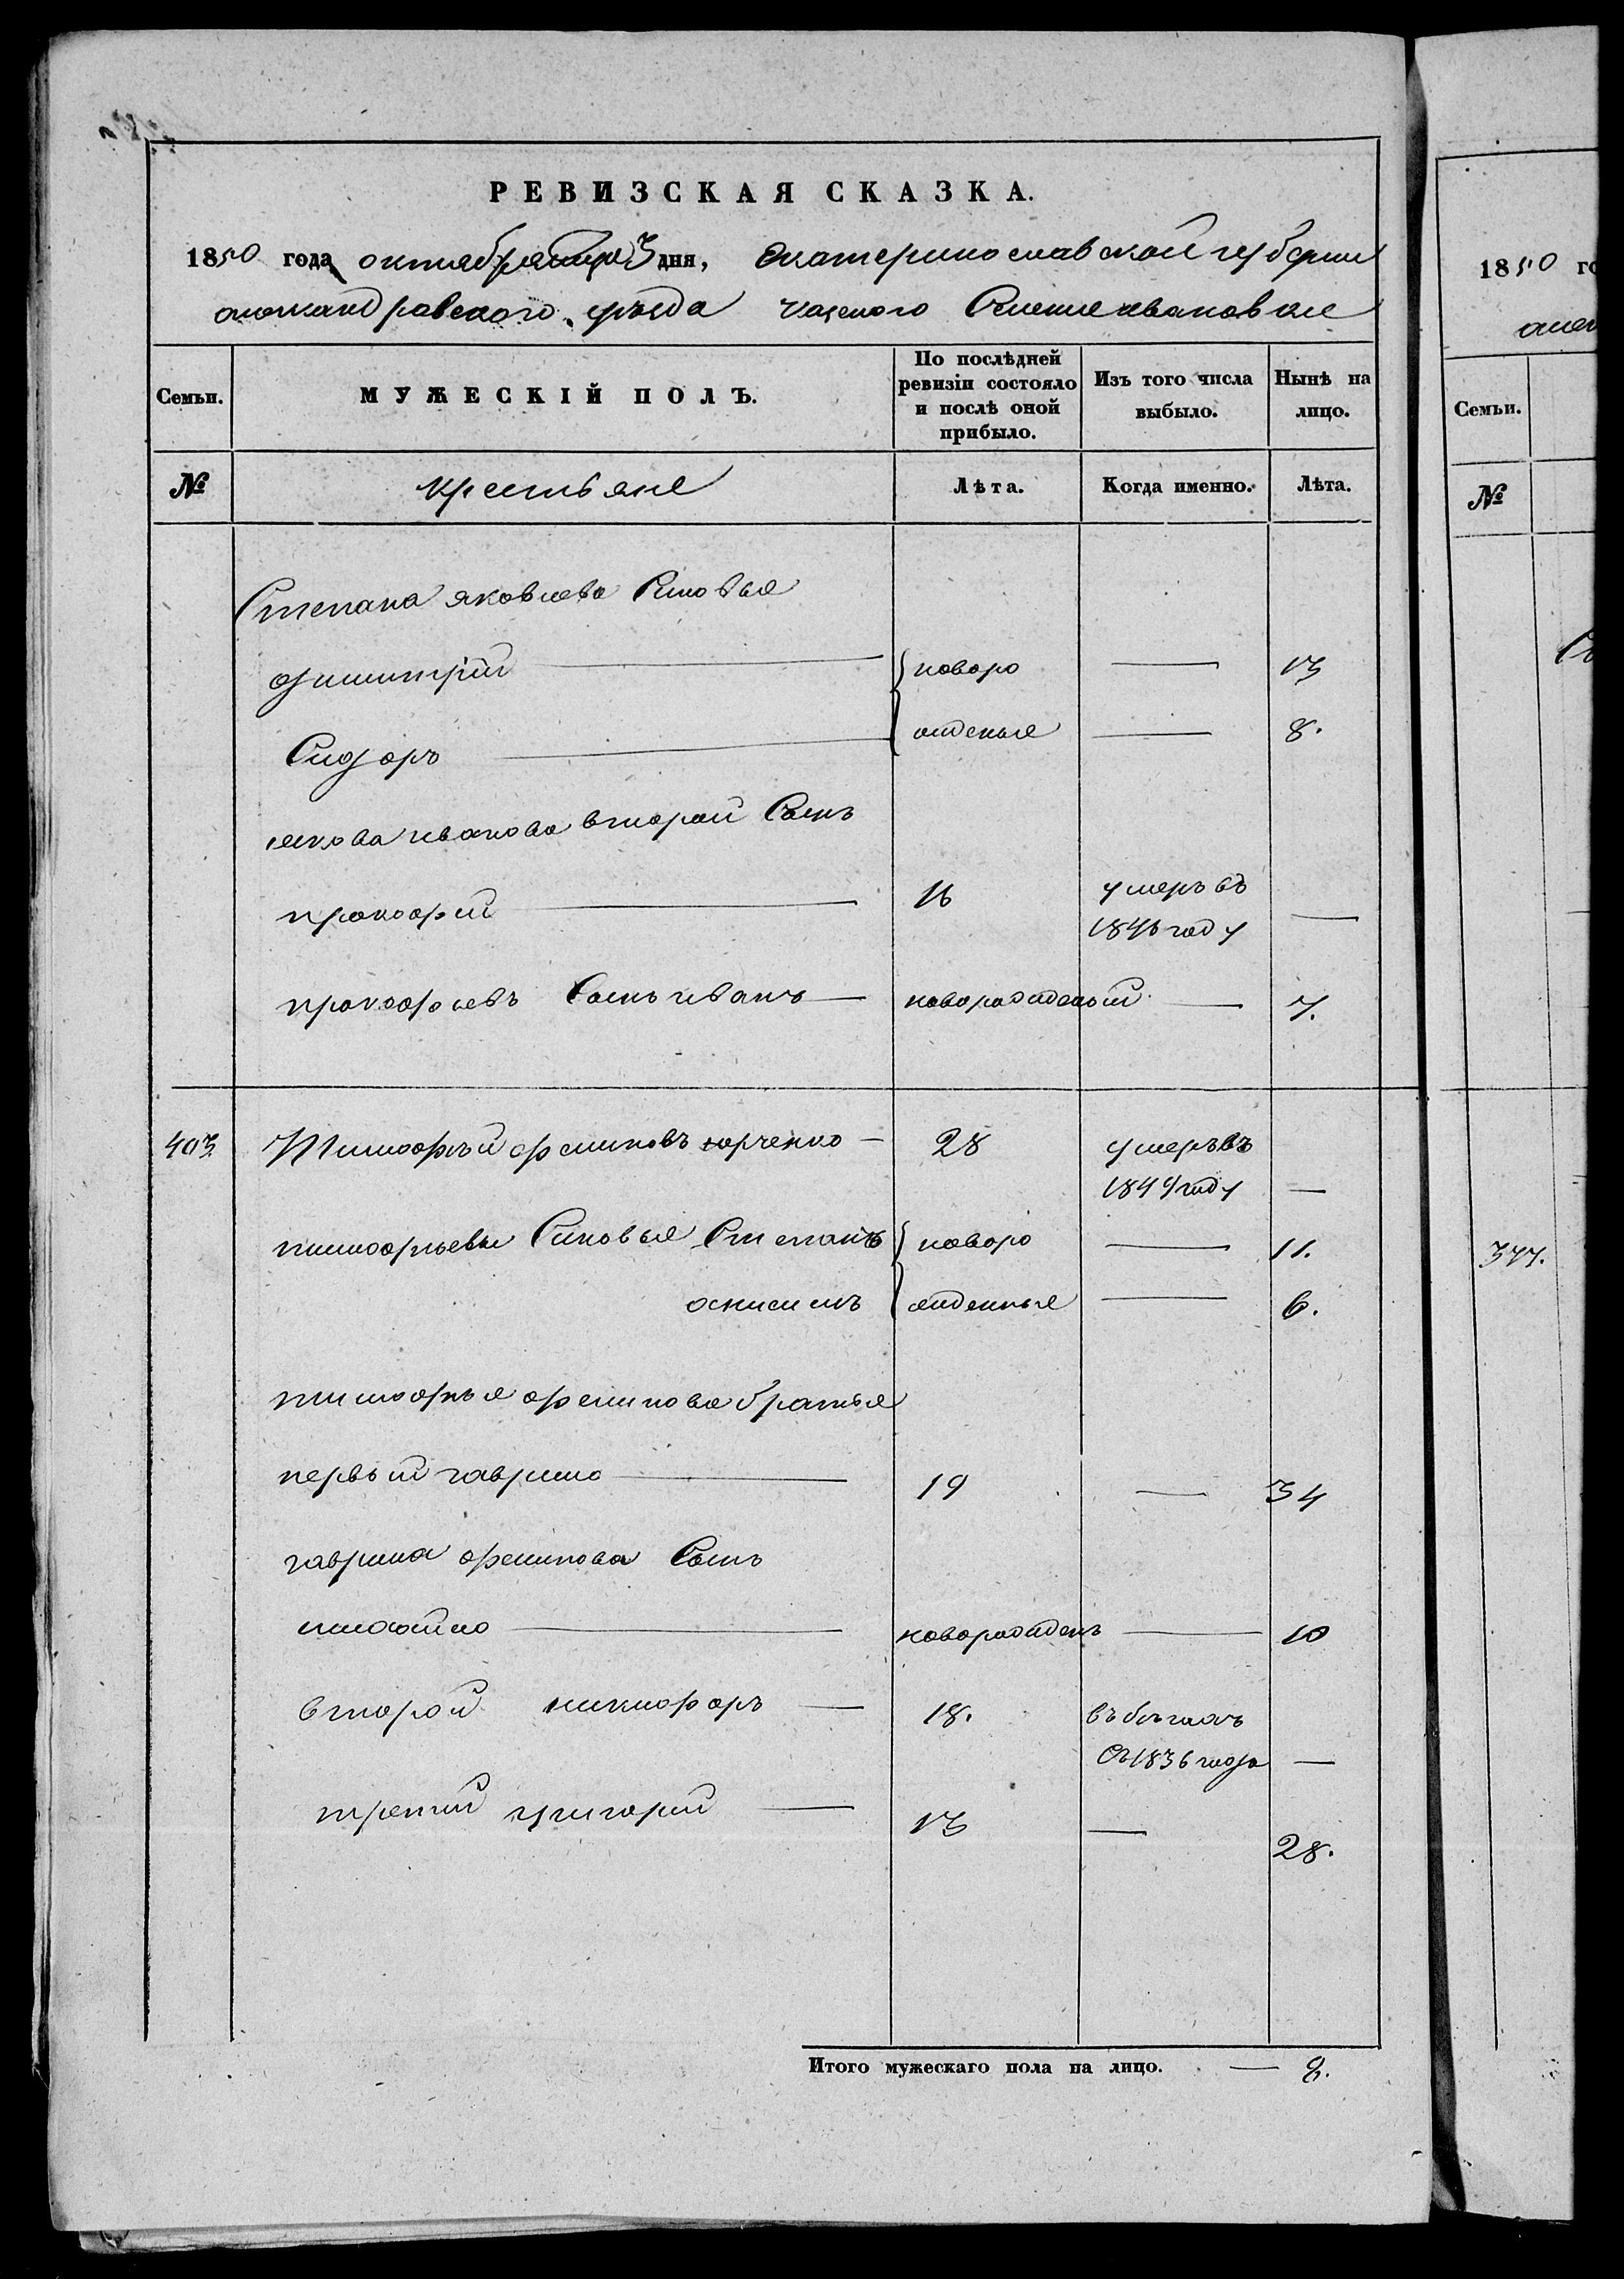 РЕВИЗСКАЯ СКАЗКА.
1850 года октября 3 дня, Екатеринославской губернии
александровского уѣзда казеного Селения ивановки
Семьи. МУЖЕСКІЙ ПОЛЪ. По послѣдней ревизіи состояло и послѣ оной прибыло. Изъ того числа выбыло. Нынѣ на лицо.
№ крестьяне Лѣта. Когда именно. Лѣта.
Степана яковлева Сыновья
димитрій — новоро — 13
Сидоръ — жденые — 8.
якова иванова второй Сынъ
прокофій — 16 умеръ въ 1846 году —
прокофьевъ Сынъ иванъ — новорожденый — 7.
403 Тимофѣй филиповъ юрченко — 28 умеръ въ 1844 году —
тимофѣевы Сыновья Степанъ новоро — 11.
онисимъ жденные — 6.
тимофѣя филипова братья
первый гаврило — 19 — 34
гаврила филипова Сынъ
михайло — новорожденъ — 10
второй никифоръ — 18. въ бѣгахъ Съ 1836 года —
третий григорий — 13 — 28.
Итого мужескаго пола на лицо. — 8.
1850 го
Семьи.
№
377.